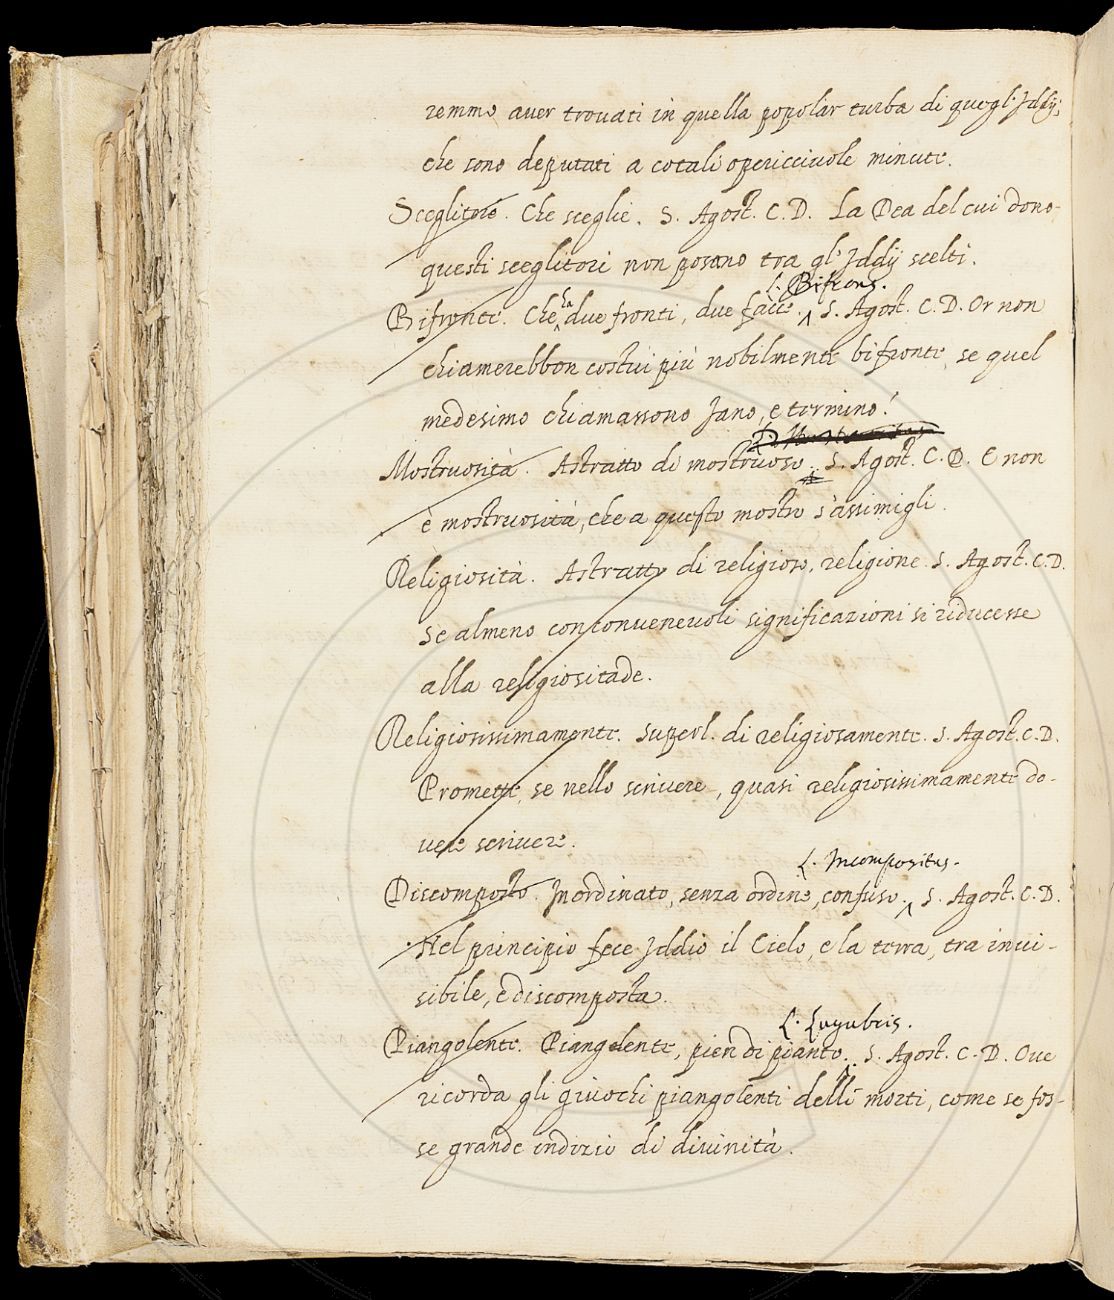 remmo auer trouati in quella popolar turba di quegl'Iddij,
che sono deputati a cotali opericciuole minute.
Sceglitore. Che sceglie. S. Agost. C. D. La Dea del cui dono
questi sceglitori non posano tra gl'Iddij scelti.
L. Bifrons.
Bifronte. Che ha due fronti, due facce. S. Agost. C. D. Or non
chiamerebbon costui più nobilmente bifronte, se quel
medesimo chiamassono Jano, e termino?
Mostruosità. Astratto di mostruoso. S. Agost. C. D. E non
è mostruosità, che a questo mostro s'assimigli.
Religiosità. Astratto di religioso, religione. S. Agost. C. D.
Se almeno con conuenevoli significazioni si riducesse
alla religiositade.
Religiosissimamente. Superl. di religiosamente. S. Agost. C. D.
Promette, se nello scriuere, quasi religiosissimamente do-
uere scriuere.
L. Incompositus.
Discomposto. Inordinato, senza ordine, confuso. S. Agost. C. D.
Nel principio fece Iddio il Cielo, e la terra, tra inui-
sibile, e discomposta.
L. Lugubris.
Piangolente. Piangolente, pien di pianto. S. Agost. C. D. Oue
ricorda gli giuochi piangolenti delli morti, come se fos-
se grande indizio di diuinità.